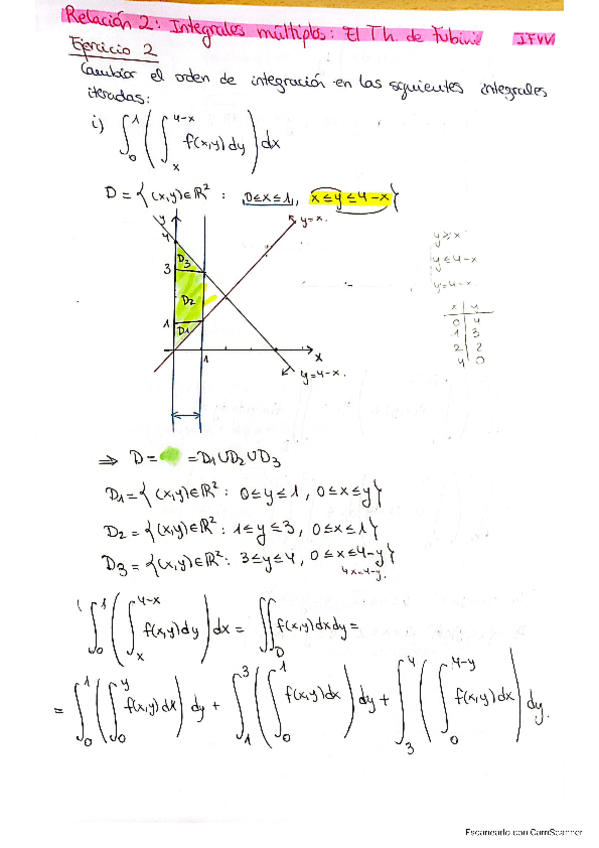 Relación 2: Integrales múltiples: El Th. de Fubini JFVV
Ejercicio 2
Cambiar el orden de integración en las siguientes integrales
iteradas:
i) ∫₀¹ (∫ₓ^{4-x} f(x,y) dy) dx
D = { (x,y) ∈ ℝ² : 0 ≤ x ≤ 1, x ≤ y ≤ 4-x }
y
4
y = x.
D3
3
D2
1
D1
1
x
y = 4-x.
y ≥ x
y ≤ 4-x
y = 4-x
x y
0 4
1 3
2 2
4 0
⇒ D = = D1 ∪ D2 ∪ D3
D1 = { (x,y) ∈ ℝ² : 0 ≤ y ≤ 1, 0 ≤ x ≤ y }
D2 = { (x,y) ∈ ℝ² : 1 ≤ y ≤ 3, 0 ≤ x ≤ 1 }
D3 = { (x,y) ∈ ℝ² : 3 ≤ y ≤ 4, 0 ≤ x ≤ 4-y }
x = 4-y.
∫₀¹ (∫ₓ^{4-x} f(x,y) dy) dx = ∬_D f(x,y) dx dy =
= ∫₀¹ (∫₀^y f(x,y) dx) dy + ∫₁³ (∫₀¹ f(x,y) dx) dy + ∫₃⁴ (∫₀^{4-y} f(x,y) dx) dy.
Escaneado con CamScanner